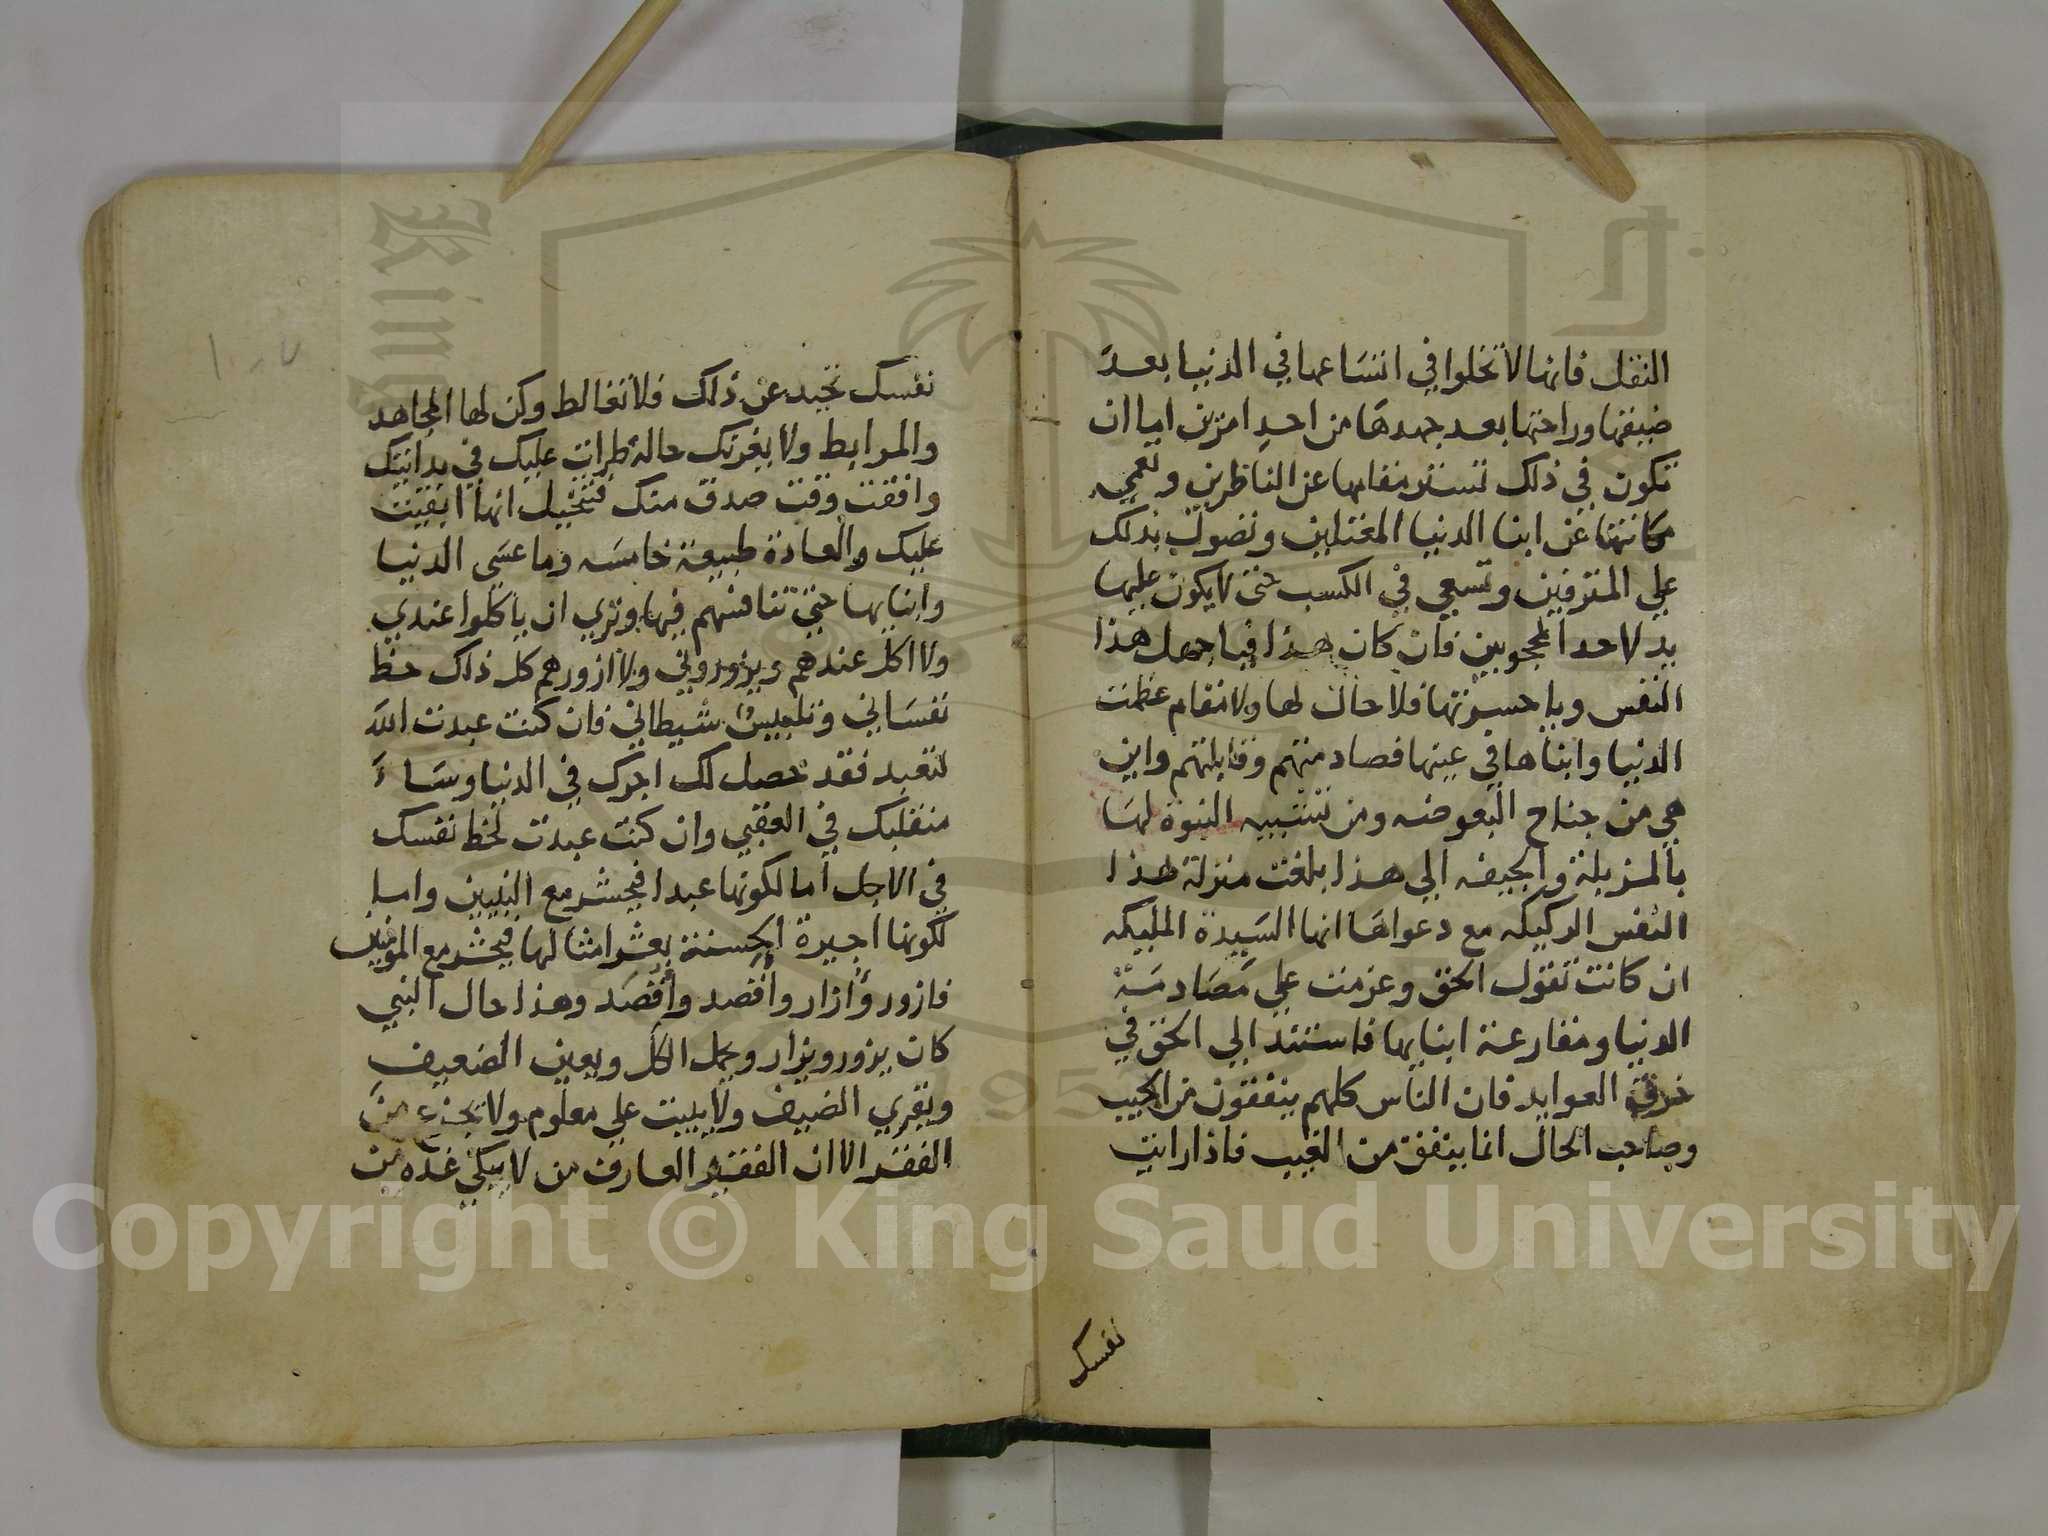 النقل فانها لا تخلوا في اتساعها في الدنيا بعد
ضيقها وراحتها بعد جهدها من احد امرين اما ان
تكون في ذلك تستر مقامها عن الناظرين وتعمي
مكانتها عن ابنا الدنيا المغتابين وتصول بذلك
علي المترفين وتسعي في الكسب حتى لا يكون عليها
يد لاحد المحجوبين فان كان هذا فيا جهل هذا
النفس ويا حسرتها فلا حال لها ولا مقام عظمت
الدنيا وابناها في عينها فصادمتهم وقابلتهم واين
هي من جناح البعوضه ومن تشبيه النبوة لها
بالمزبلة والجيفه الي هذا بلغت منزلة هذا
النفس الركيكه مع دعواها انها السيدة المليكه
ان كانت تقول الحق وعزمت علي مصادمة
الدنيا ومقارعة ابنايها فاستند الي الحق في
خرق العوايد فان الناس كلهم ينفقون من الجيب
وصاحب الحال انما ينفق من الغيب فاذا رايت
نفسك
نفسك تحيد عن ذلك فلا تغالط وكن لها المجاهد
والمرابط ولا يغرنك حالة طرات عليك في بدايتك
وافقت وقت صدق منك فتتخيل انها ابقيت
عليك والعادة طبيعة خامسه وما عسى الدنيا
وابنايها حتى تنافسهم فيها وتري ان ياكلوا عندي
ولا اكل عندهم ويزوروني ولا ازورهم كل ذلك حظ
نفساني وتلبيس شيطاني فان كنت عبدت الله
لتعبد فقد حصل لك اجرك في الدنيا وساء
منقلبك في العقبي وان كنت عبدت لحظ نفسك
في الاجل اما لكونها عبدا فيحشر مع النبيين واما
لكونها اجيرة الحسنة بعشر امثالها فيحشر مع المومنين
فازور وأزار وأقصد وأقصد وهذا حال النبي
كان يزور ويزار ويحمل الكل ويعين الضعيف
ويقري الضيف ولا يبيت علي معلوم ولا يجزع من
الفقر الا ان الفقير العارف من لا يبكي غده من
Copyright © King Saud University